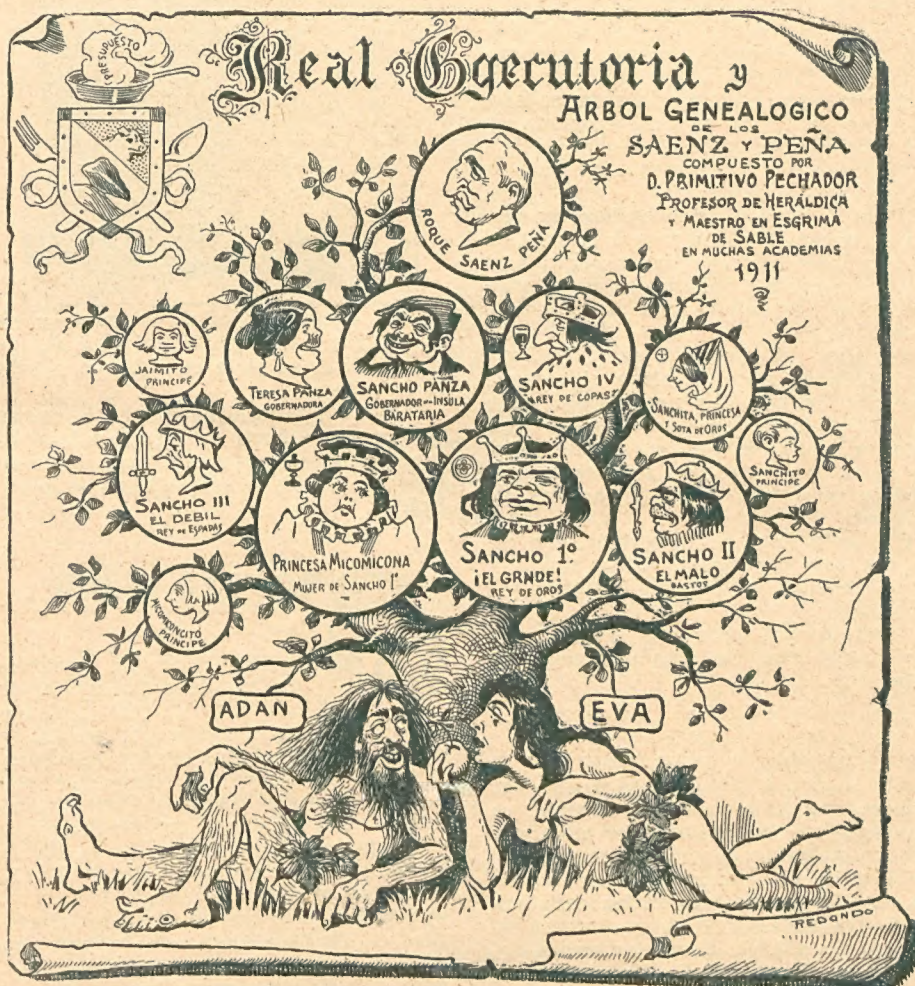 PRESUPUESTO
Real Egecutoria y
ARBOL GENEALOGICO
DE LOS
SAENZ Y PEÑA
COMPUESTO POR
D. PRIMITIVO PECHADOR
PROFESOR DE HERÁLDICA
Y MAESTRO EN ESGRIMA
DE SABLE
EN MUCHAS ACADEMIAS
1911
ROQUE SAENZ PEÑA
JAIMITO
PRINCIPE
TERESA PANZA
GOBERNADORA
SANCHO PANZA
GOBERNADOR DE INSULA
BARATARIA
SANCHO IV
REY DE COPAS
SANCHITA, PRINCESA
Y SOTA DE OROS
SANCHITO
PRINCIPE
SANCHO III
EL DEBIL
REY DE ESPADAS
PRINCESA MICOMICONA
MUJER DE SANCHO 1º
SANCHO 1º.
¡EL GRNDE!
REY DE OROS
SANCHO II
EL MALO
BASTOS
MICOMICONCITO
PRINCIPE
ADAN
EVA
REDONDO